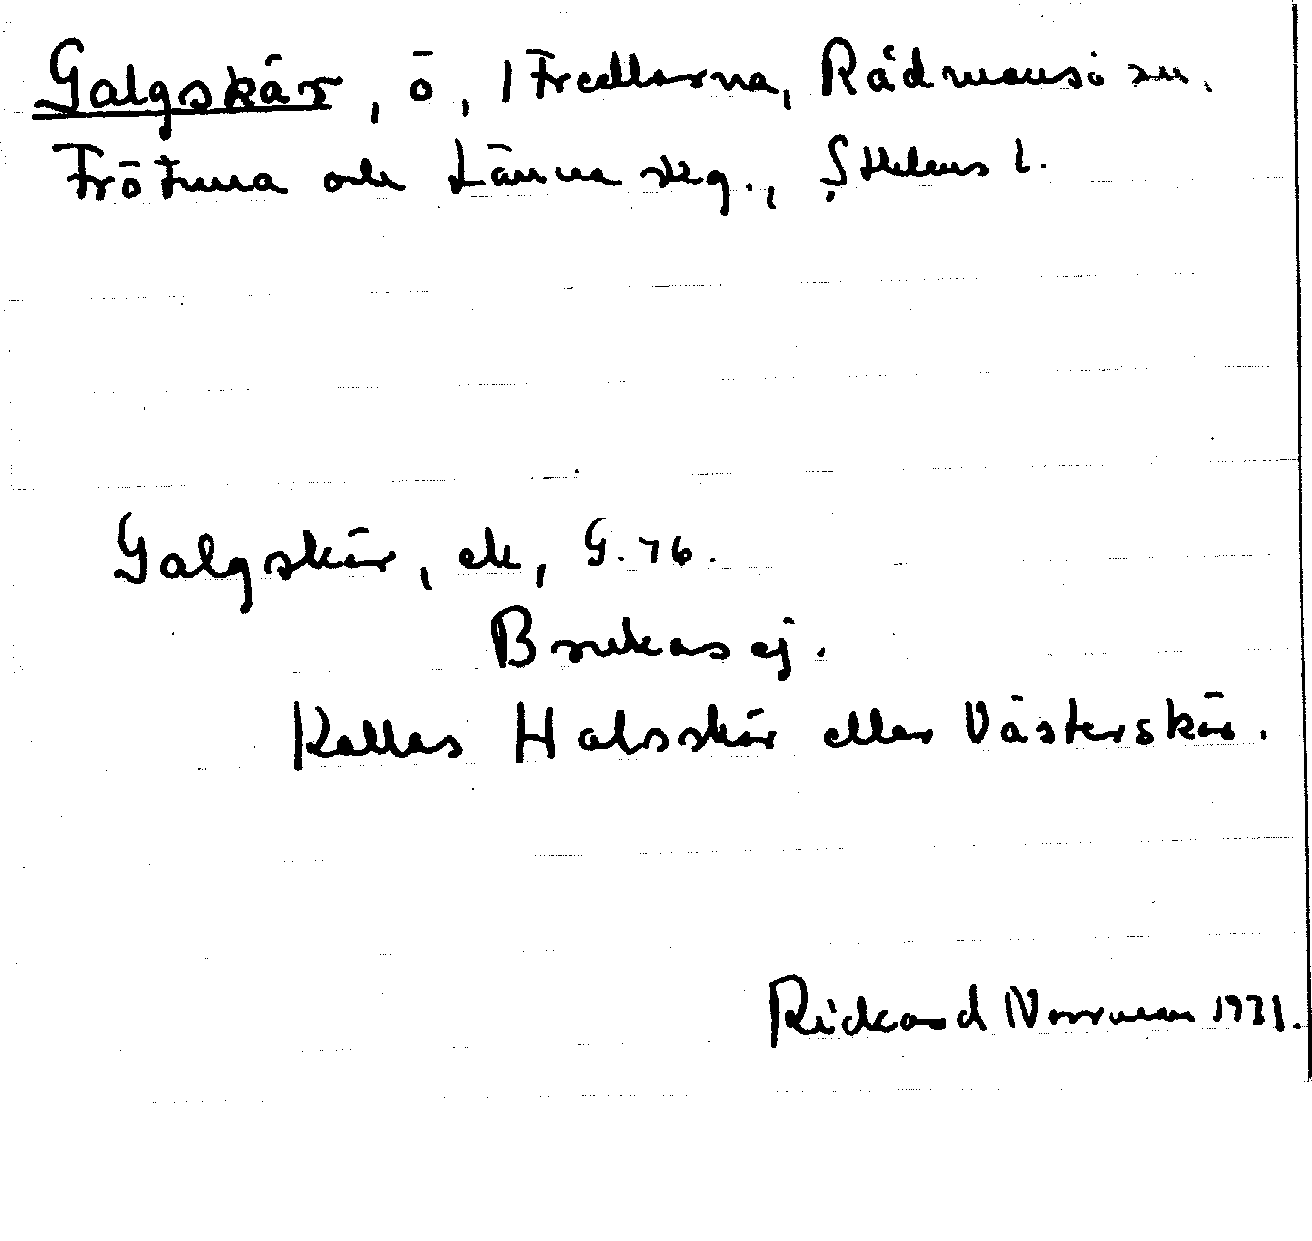 Galgskär, ö, i Fredlarna, Rådmansö sn,
Frötuna och Länna skg., Sthlms l.
Galgskär, ek, G. 76.
Brukas ej.
Kallas Halsskär eller Västerskär.
Rickard Norrman 1931.